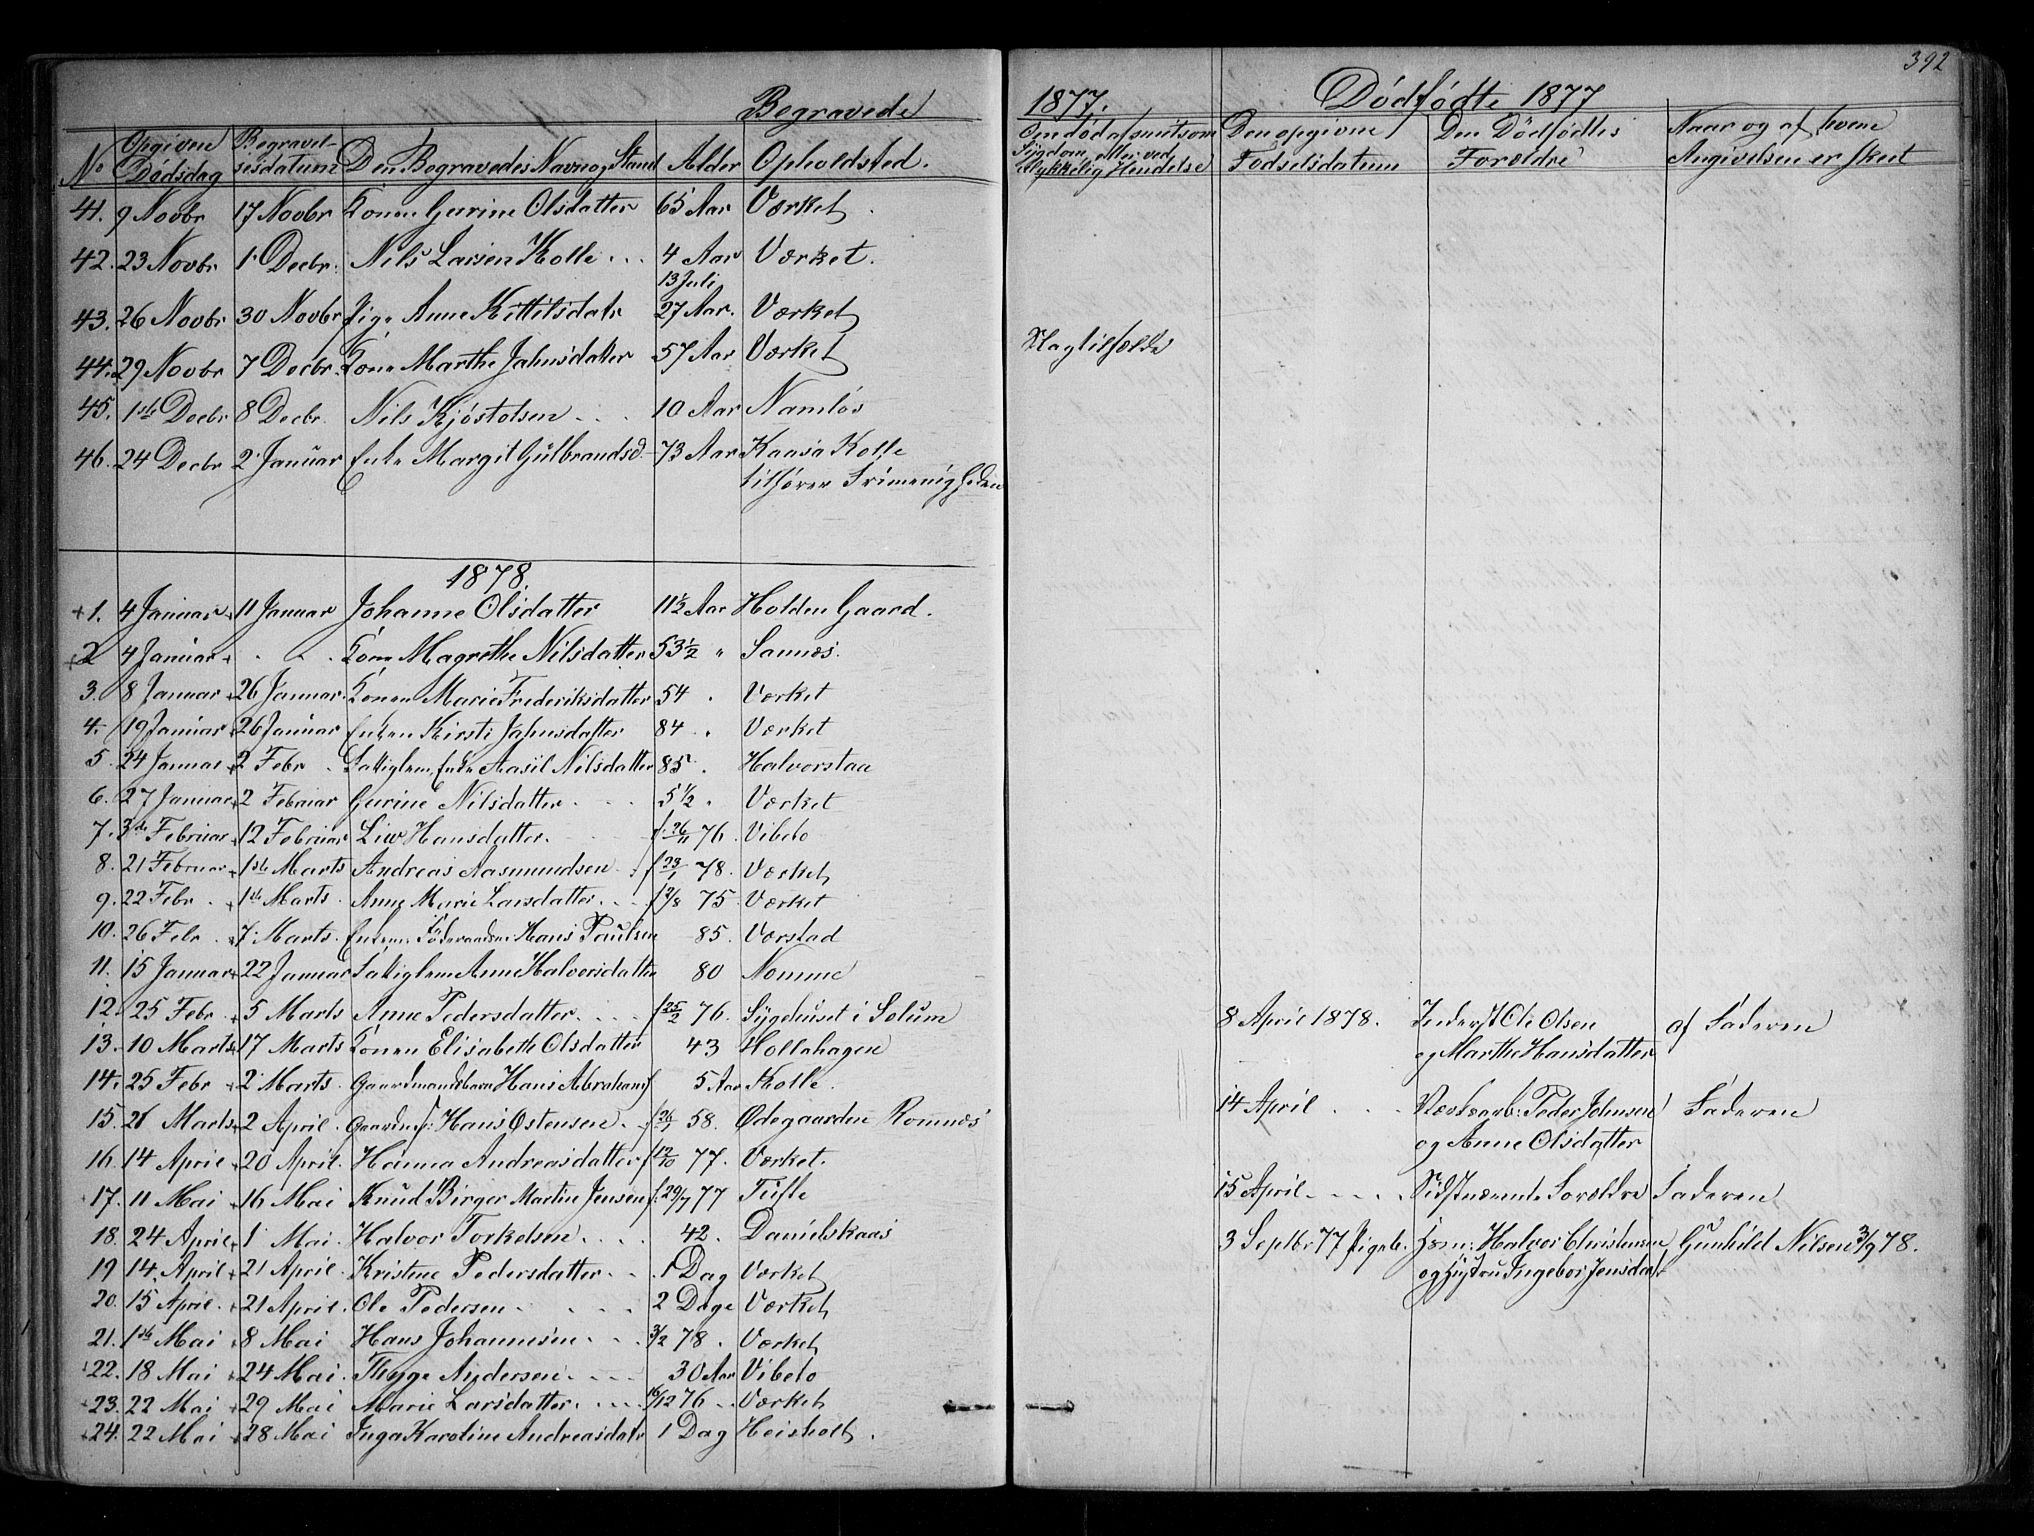 392
Begravede
No Opgiven Dødsdag Begravelsesdatum Den Begravedes Navn og Stand Alder Opholdsted.
41. 9 Novbr 17 Novbr Konen Gurine Olsdatter 65 Aar Værket
42. 23 Novbr 1. Decbr. Nils Larsen Kolle 4 Aar Værket.
13 Juli
43. 26 Novbr 30 Novbr Pige Anne Kittilsdatr 27 Aar. Værket
44. 29 Novbr 7 Decbr. Kone Marthe Jahnsdatter 57 Aar Værket
45. 1ste Decbr 8 Decbr. Nils Kjøstolsen 10 Aar Namløs
46. 24 Decbr 2. Januar Enke Margit Gulbrandsd. 73 Aar Kaasa Kolle
tilhører Frimenigheden
1878.
+1. 4 Januar 11 Januar Johanne Olsdatter 11½ Aar Holden Gaard.
+2 4 Januar " " Kone Magrethe Nilsdatter 53½ " Sannæs.
3. 8 Januar 26 Januar Konen Marie Frederiksdatter 54 " Værket
4. 19 Januar 26 Januar Enken Kirsti Jahnsdatter 84 " Værket
5. 24 Januar 2 Febr Fattiglem, Enke Aasil Nilsdatter 85 " Halvorstaa
6. 27 Januar 2 Februar Gurine Nilsdatter 5½ " Værket
7. 3de Februar 12 Februar Liv Hansdatter. f. 26/11 76. Vibeto
8. 21 Februar 1ste Marts Andreas Aasmundsen f 23/1 78. Værket
9. 22 Febr 1ste Marts Anne Marie Larsdatter f 2/8 75 Værket
10. 26 Febr 7. Marts Enkem. Føderaadsm. Hans Paulsen 85. Værstad
11. 15 Januar 22 Januar Fattiglem Anne Halvorsdatter 80 Nomme
12. 25 Febr 5 Marts Anne Pedersdatter f 25/2 76. Sygehuset i Solum
13. 10 Marts 17 Marts Konen Elisabeth Olsdatter 43 Hollahagen
14. 25 Febr 2. Marts Gaardmandsbarn Hans Abrahams 5 Aar Kolle.
15. 26 Marts 2 April Hans Østensen f 26/7 58. Ødegaarden Romnæs
16. 14 April 20 April. Hanna Andreasdatter f 12/10 77. Værket.
17. 11 Mai 16 Mai Knud Birger Martin Jensen f. 29/7 77 Tufte
18. 24 April 1. Mai Halvor Torkelsen 42. Danielskaas
19 14 April 21 April Kristine Pedersdatter 1 Dag Værket
20. 15 April 21 April. Ole Pedersen 2 Dage Værket
21. 1ste Mai 8 Mai Hans Johannesen 3/2 78. Værket
22. 18 Mai 24 Mai. Thyge Andersen 30 Aar Vibeto
23. 22 Mai 29 Mai Marie Larsdatter 16/12 76 Værket
24. 22 Mai 28 Mai Inga Karoline Andreasdatr 1 Dag Heisholt.
1877. Dødfødte 1877
Om død af smitsom Sygdom, eller ved ulykkelig Hendelse Den opgivne Fødselsdatum Den Dødfødtes Forældre Naar og af hvem Angivelsen er skeet
Slagtilfælde
8 April 1878. Inderst Ole Olsen
og Marthe Hansdatter af Faderen
14 April Værksarb: Peder Johnsen Faderen
og Anne Olsdatter
15 April Sidstnævnte Forældre Faderen
3 Septbr 77 Pigeb. Halvor Christensen Gunhild Nilsen 3/9 78.
og Hustru Ingebor Jensdatr